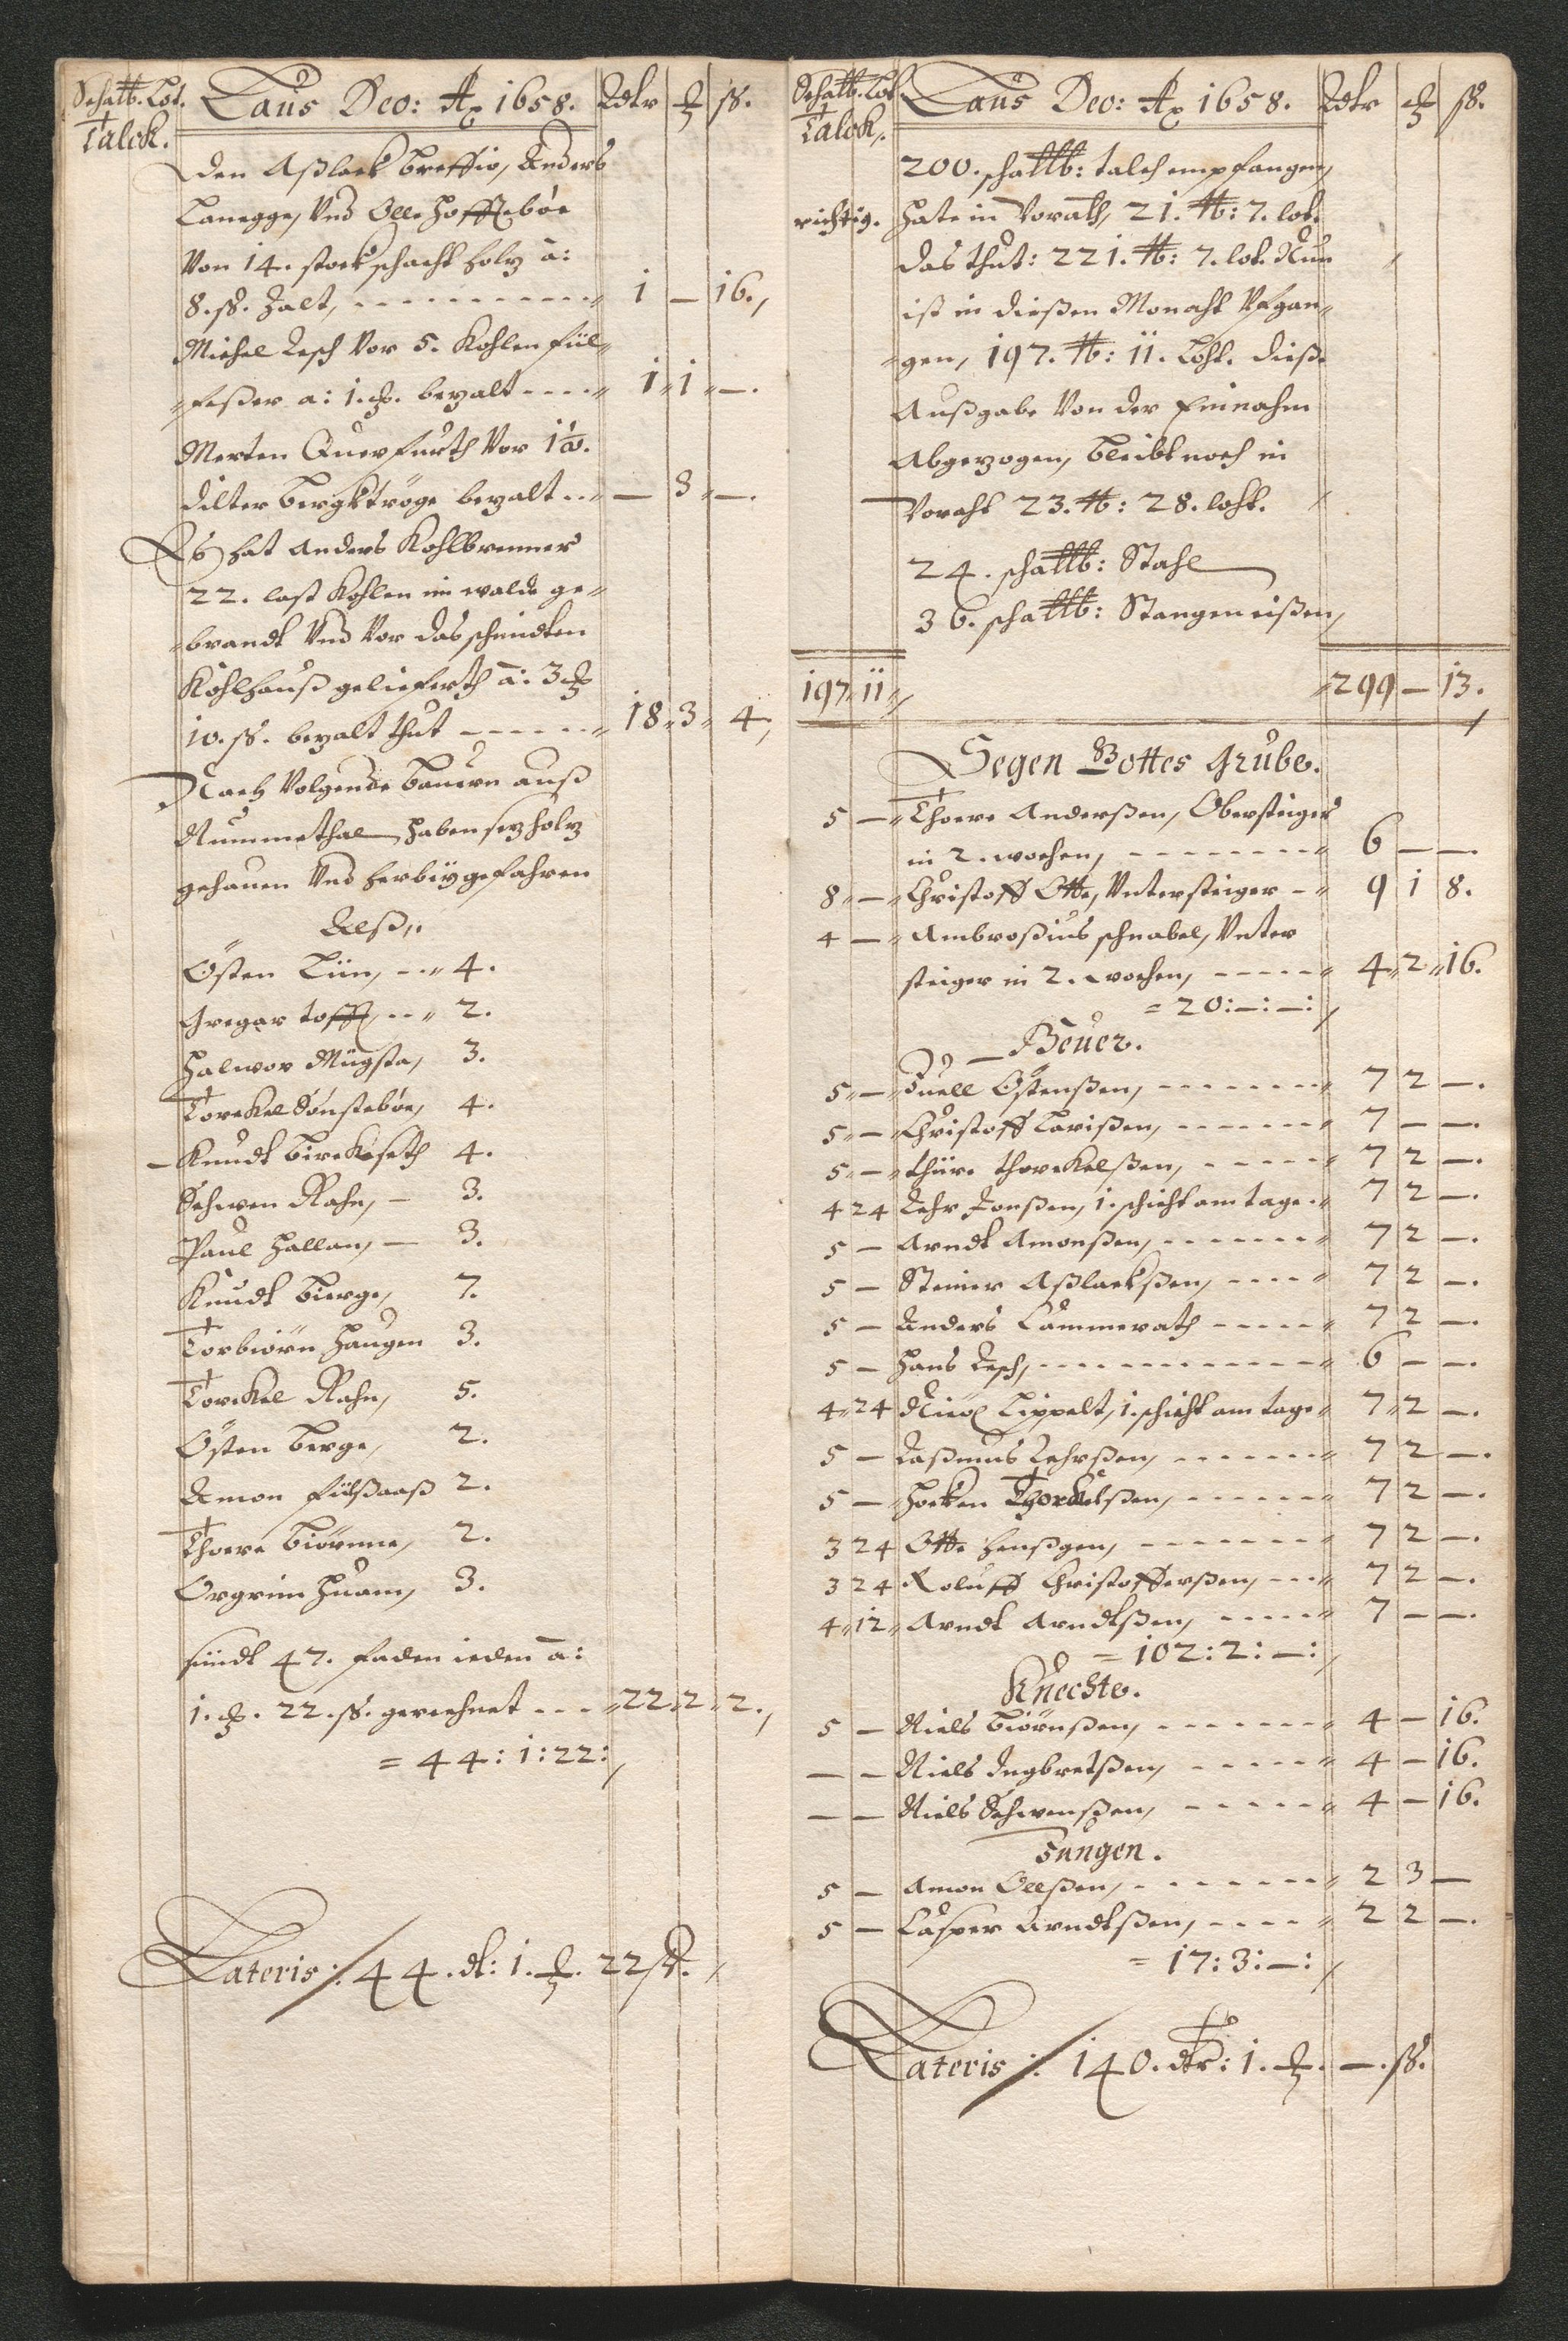 Schalb. Lot.
Talck.
Laus Deo: Ao 1658. Rdtr ß.
Den Aßlack Breffio, Anders
Lanegge, Vnd Olle Hoffteböe
Von 14. stock schacht holz â:
8. ß. Zalt, 1 — 16.
Michel Resch Vor 5. Kohlen fül„
„feßer a: 1. bezalt 1 „ 1 „ —.
Merten Querfurth Vor
dilter Bergktröge bezalt — 3 „ —.
Es hat Anders Kohlbrenner
22. last Kohlen im walde ge„
„brandt Vnd Vor das schmidten
Kohlhauß geliefferth â: 3
10. ß. bezalt thut 18 „ 3 „ 4,
Nach Volgende Bauern auß
Nummethal haben sezholz
gehauen Vnd herbey gefahren
Alß,.
Östen Liin, 4.
Gregar toffte, 2.
Halwor Mügsta, 3.
Torckel Sönstebøe, 4.
Knudt Birckeseth 4.
Schwen Rahn, — 3.
Paul Hallan, — 3.
Knudt Bierge, 7.
Torbiörn Haugen 3.
Torckel Rahn, 5.
Östen Berge, 2.
Amon 2.
Thorre Biörnne, 2.
Orgrim Huam, 3.
sindt 47. faden ieden â:
1. 22. ß. gerechnet 22 „ 2 „ 2.,
= 44: 1: 22:,
Lateris ∕: 44. dt: 1. 22 ß.
Schalb. Lot
Talck.
Laus Deo: Ao 1658. Rdtr ß.
200. schallb: talch empfangen,
richtig. Hate in Vorath, 21. lb: 7. lot.
Das thut: 221. lb: 7. lot. Nun
ist in dießen Monaht Vfgan„
„gen, 197. lb: 11. Loht. Dieße
Außgabe Von der Einnahm
Abgezogen, bleibt noch in
Voraht 23. lb: 28. loht.
24. schallb: Stahl
36. schallb: Stangen eißen,
197 „ 11 „ 299 — 13.
Segen Gottes Grube.
5 — Thorre Anderßen, Obersteiger
in 2. wochen, 6 — —.
8 „ — „ Christoff Otte, Vntersteiger 9 1 8.
4 — „ Ambroßius schnabel, Vnter
steiger in 2. wochen, 4 „ 2 „ 16.
= 20: —: —:,
Heuer.
5 „ — „ Juell Östenßen, 7 2 —.
5 „ — „ Christoff Larißen, 7 — —.
5 — „ thüre thorckelßen, 7 2 —.
4 24 Lehr Jonßen, 1. schicht am tage 7 2 —.
5 — Arndt Amonßen, 7 2 —.
5 — Steiner Aßlackßen, 7 2 —.
5 — Anders Cammerath 7 2 —.
5 — Hans Resch, 6 — —.
4 „ 24 Nicol Lippelt, 1. schicht am tage 7 „ 2 —.
5 — Raßmus Lehrßen, 7 2 —.
5 — Hocken Thorckelßen, 7 2 —.
3 24 Otte henßgen, 7 2 —.
3 24 Roluff Christofferßen, 7 2 —.
4 „ 12 „ Arndt Arndtßen, 7 — —.
= 102: 2: —:,
Knechte.
5 — Niels Biörnßen, 4 — 16.
— — Niels Ingbretßen, 4 — 16.
— — Niels Schwenßen, 4 — 16.
Jungen.
5 — Amon Olleßen, 2 3 —
5 — Casper Arndtßen, 2 2 —.
= 17: 3: —:,
Lateris ∕: 140. dtr: 1. —. ß.